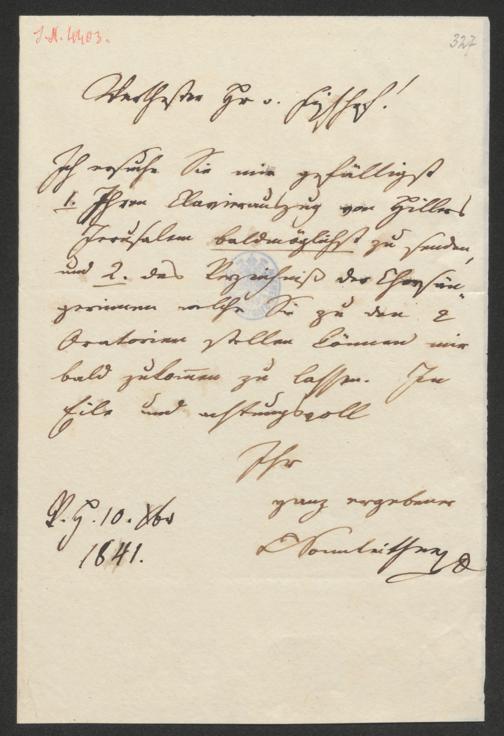 I.N. 4403.
327
Werthester Hr v. Fischhof!
Ich ersuche Sie mir gefälligst
1. Ihren Clavierauszug von Hillers
Jerusalem baldmöglichst zu senden,
und 2. das Verzeichniß der Chorsän„
gerinnen welche Sie zu den 2
Oratorien stellen können mir
bald zukommen zu lassen. In
Eile und achtungsvoll
Ihr
ganz ergebener
Sonnleithner
10. Xbr
1841.